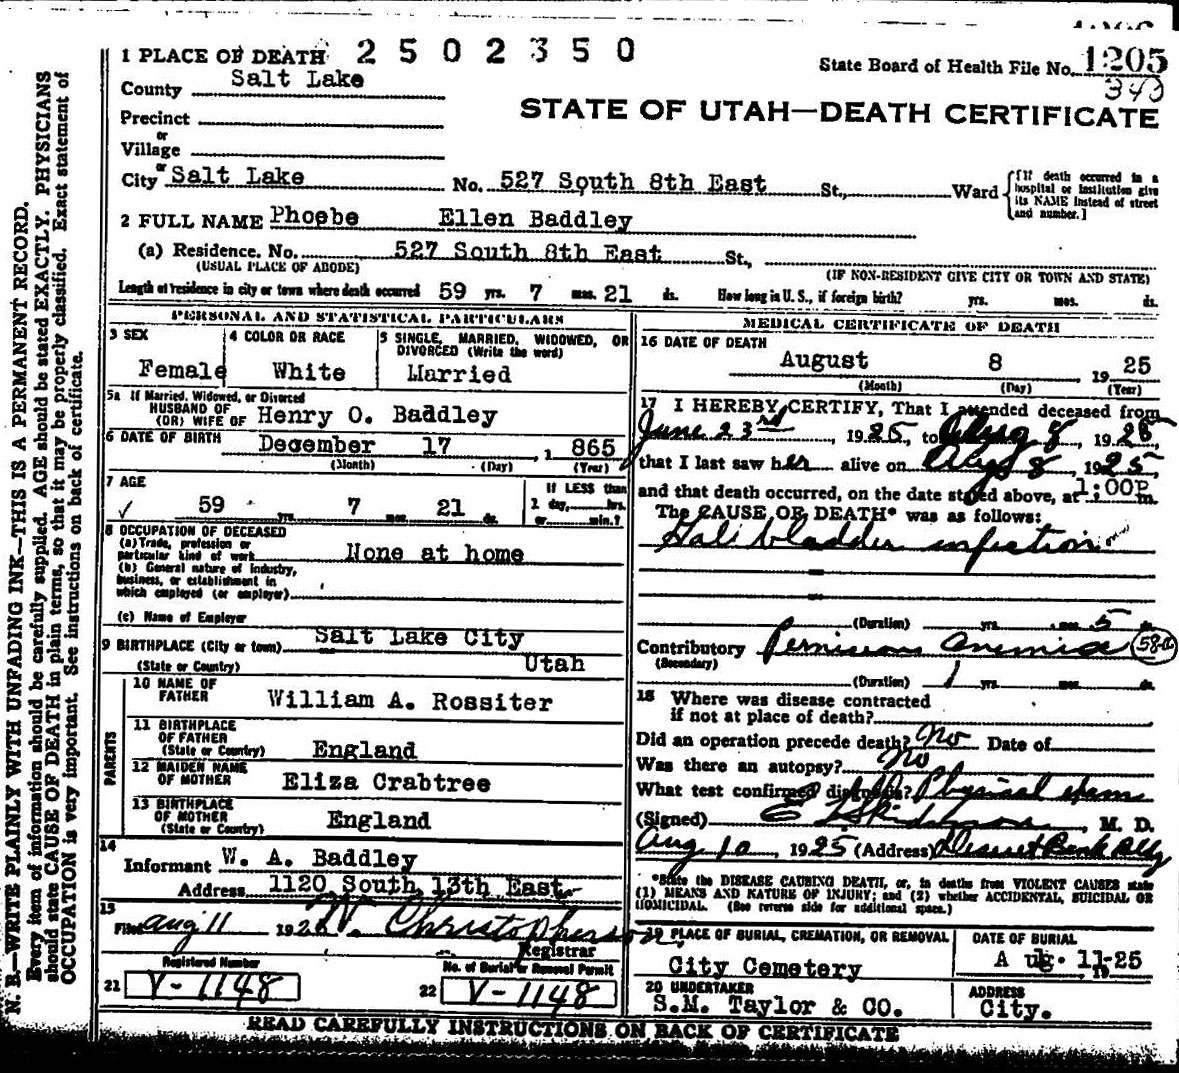 1 PLACE OF DEATH 2502350
State Board of Health File No. 1205
County Salt Lake
340
STATE OF UTAH—DEATH CERTIFICATE
Precinct
or
Village
or
City Salt Lake No. 527 South 8th East St., Ward
[If death occurred in a
hospital or institution give
its NAME instead of street
and number.]
2 FULL NAME Phoebe Ellen Baddley
(a) Residence. No. 527 South 8th East St.,
(USUAL PLACE OF ABODE) (IF NON-RESIDENT GIVE CITY OR TOWN AND STATE)
Length of residence in city or town where death occurred 59 yrs. 7 mos. 21 ds. How long in U. S., if foreign birth? yrs. mos. ds.
PERSONAL AND STATISTICAL PARTICULARS
3 SEX
Female
4 COLOR OR RACE
White
5 SINGLE, MARRIED, WIDOWED, OR
DIVORCED (Write the word)
Married
5a If Married, Widowed, or Divorced
HUSBAND OF
(OR) WIFE OF Henry O. Baddley
6 DATE OF BIRTH December 17, 1 865
(Month) (Day) (Year)
7 AGE
59 yrs. 7 mos. 21 ds.
If LESS than
1 day, hrs.
or min.?
8 OCCUPATION OF DECEASED
(a) Trade, profession or
particular kind of work None at home
(b) General nature of industry,
business, or establishment in
which employed (or employer)
(c) Name of Employer
9 BIRTHPLACE (City or town) Salt Lake City
(State or Country) Utah
PARENTS
10 NAME OF
FATHER William A. Rossiter
11 BIRTHPLACE
OF FATHER
(State or Country) England
12 MAIDEN NAME
OF MOTHER Eliza Crabtree
13 BIRTHPLACE
OF MOTHER
(State or Country) England
14
Informant W. A. Baddley
Address 1120 South 13th East
15
Filed Aug 11 192 W. Christopherson
Registrar
Registered Number
21 V-1148
No. of Burial or Removal Permit
22 V-1148
MEDICAL CERTIFICATE OF DEATH
16 DATE OF DEATH
August 8, 19 25
(Month) (Day) (Year)
17 I HEREBY CERTIFY, That I attended deceased from
June 23rd, 1925, to Aug 8, 1925,
that I last saw her alive on Aug 8, 1925,
and that death occurred, on the date stated above, at 1:00P m.
The CAUSE OF DEATH* was as follows:
Gall bladder infection
(Duration) yrs. mos. 5 ds.
Contributory Pernicious Anemia 58a
(Secondary)
(Duration) 1 yrs. mos. ds.
18 Where was disease contracted
if not at place of death?
Did an operation precede death? No Date of
Was there an autopsy? No
What test confirmed diagnosis? Physical exam
(Signed) M. D.
Aug 10, 1925 (Address) Deseret Bank Bldg
*State the DISEASE CAUSING DEATH, or, in deaths from VIOLENT CAUSES state
(1) MEANS AND NATURE OF INJURY; and (2) whether ACCIDENTAL, SUICIDAL OR
HOMICIDAL. (See reverse side for additional space.)
19 PLACE OF BURIAL, CREMATION, OR REMOVAL
City Cemetery
DATE OF BURIAL
Aug. 11-25
20 UNDERTAKER
S.M. Taylor & CO.
ADDRESS
City.
READ CAREFULLY INSTRUCTIONS ON BACK OF CERTIFICATE
N. B.—WRITE PLAINLY WITH UNFADING INK—THIS IS A PERMANENT RECORD.
Every item of information should be carefully supplied. AGE should be stated EXACTLY. PHYSICIANS
should state CAUSE OF DEATH in plain terms, so that it may be properly classified. Exact statement of
OCCUPATION is very important. See instructions on back of certificate.